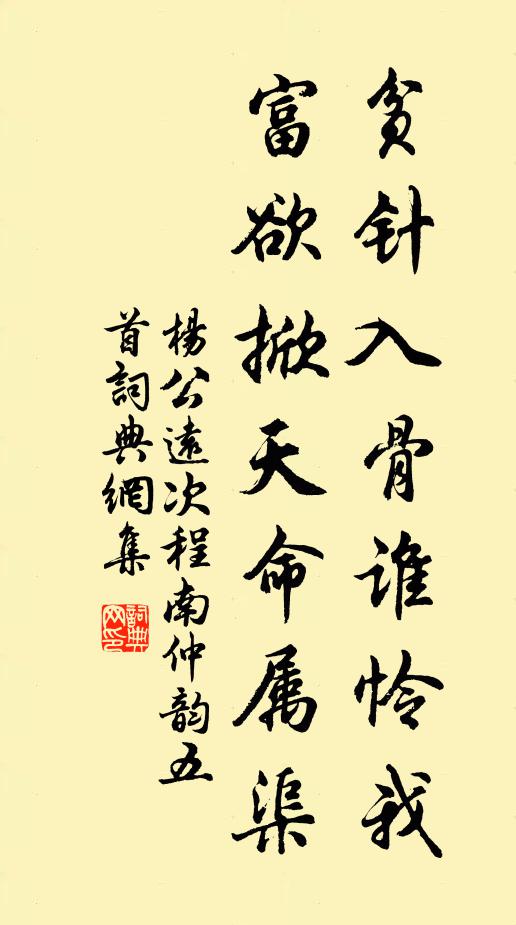 贫针入骨谁怜我
富欲掀天命属渠
楊公遠次程南仲韵五
首詞典網集
詞典
网印